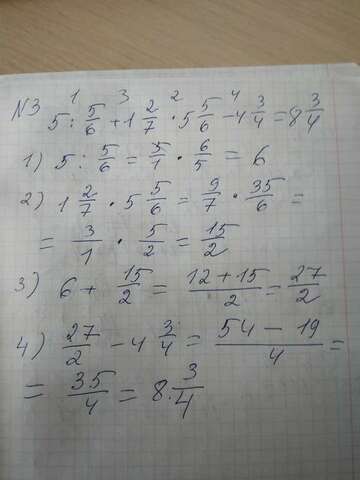 N3 5 : 5/6 + 1 2/7 · 5 5/6 - 4 3/4 = 8 3/4
1 3 2 4
1) 5 : 5/6 = 5/1 · 6/5 = 6
2) 1 2/7 · 5 5/6 = 9/7 · 35/6 =
= 3/1 · 5/2 = 15/2
3) 6 + 15/2 = (12 + 15)/2 = 27/2
4) 27/2 - 4 3/4 = (54 - 19)/4 =
= 35/4 = 8 · 3/4